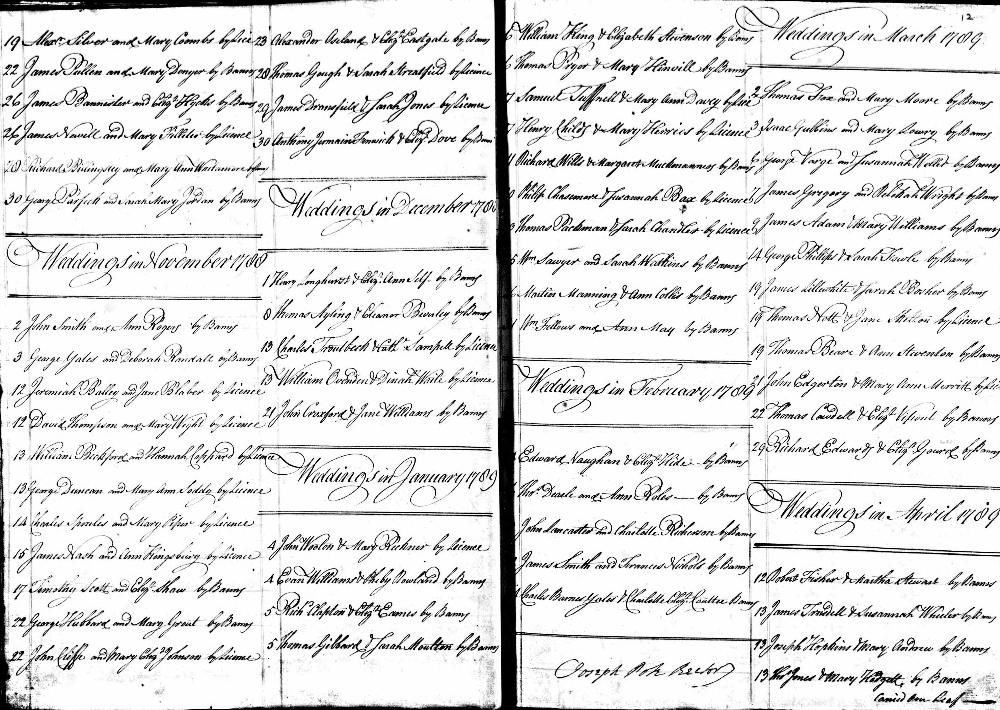 19 Alexr Silver and Mary Combs by Lice
22 James Pullen and Mary Denyer by Banns
26 James Bannister and Elizh by Banns
26 James Newell and Mary by Licence
28 Richard Billingsley and Mary Ann by
30 George and Sarah Mary Jordan by Banns
Weddings in November 1788
2 John Smith and Ann Rogers by Banns
3 George Yates and Deborah Randall by Banns
12 Jeremiah Bailey and Jane Blaber by Licence
12 David Thompson and Mary Wight by Licence
13 William Bickford and Hannah Coppard by Licence
13 George Duncan and Mary Ann Soddy by Licence
14 Charles and Mary Piper by Licence
15 James Nash and Ann Kingsbury by Licence
17 Timothy Scott and Elizh Shaw by Banns
22 George Hubbard and Mary Grout by Banns
22 John Cliffe and Mary Elizh Johnson by Licence
23 Alexander Aseland & Elizh Eastgate by Banns
28 Thomas Gough & Sarah Streatfield by Licence
29 James & Sarah Jones by Licence
30 Anthony & Elizh Dove by Bann
Weddings in December 1788
1 Henry Longhurst & Elizh Ann Self by Banns
8 Thomas Ayling & Eleanor by Banns
13 Charles Troutbeck & Cathe by Licence
13 William Ovenden & Dinah Waite by Licence
21 John Croxford & Jane Williams by Banns
Weddings in January 1789
4 John Wooton & Mary Rickner by Licence
4 Evan Williams & Rowland by Banns
5 Richd Clapton & Elizh Eames by Banns
5 Thomas Gibbard & Sarah Moulton by Banns
5 William King & Elizabeth Stevenson by Banns
6 Thomas Pryor & Mary Hinvill by Banns
7 Samuel Tuffnell & Mary Ann Davey by Lice
7 Henry Childs & Mary Herries by Licence
Richard Wills & Margaret by Banns
Philip Chasemore & Susannah Bax by Licence
Thomas Packman & Sarah Chandler by Licence
5 Wm Sawyer and Sarah Watkins by Banns
Martin Manning & Ann Colles by Banns
Wm Fellows and Ann May by Banns
Weddings in February 1789
Edward Vaughan & Elizh Hide by Banns
Thos Dearle and Ann Roles by Banns
John Lancaster and Charlotte Richerson by Banns
James Smith and Frances Nichols by Banns
Charles Barnes Yates & Charlotte Elizh by Banns
Joseph Pote Rector
12
Weddings in March 1789
2 Thomas Fox and Mary Moore by Banns
3 Isaac Gubbins and Mary Lowry by Banns
6 George and Susannah by Banns
7 James Gregory and Rebekah Wright by Banns
9 James Adam & Mary Williams by Banns
14 George Phillips & Sarah Fowle by Banns
14 James Lillewhite & Sarah Booker by Banns
19 Thomas Nott & Jane by Licence
19 Thomas Beare & Ann Steventon by Banns
21 John Edgerton & Mary Ann Merritt by Lice
22 Thomas Cowdell & Elizh by Banns
29 Richard Edwards & Elizh Gourd by Banns
Weddings in April 1789
12 Robert Fisher & Martha Stewart by Banns
13 James Trudell & Susannah Wheeler by Banns
13 Joseph Hopkins & Mary Andrew by Banns
13 Thos Jones & Mary by Banns
Carried over Leaf